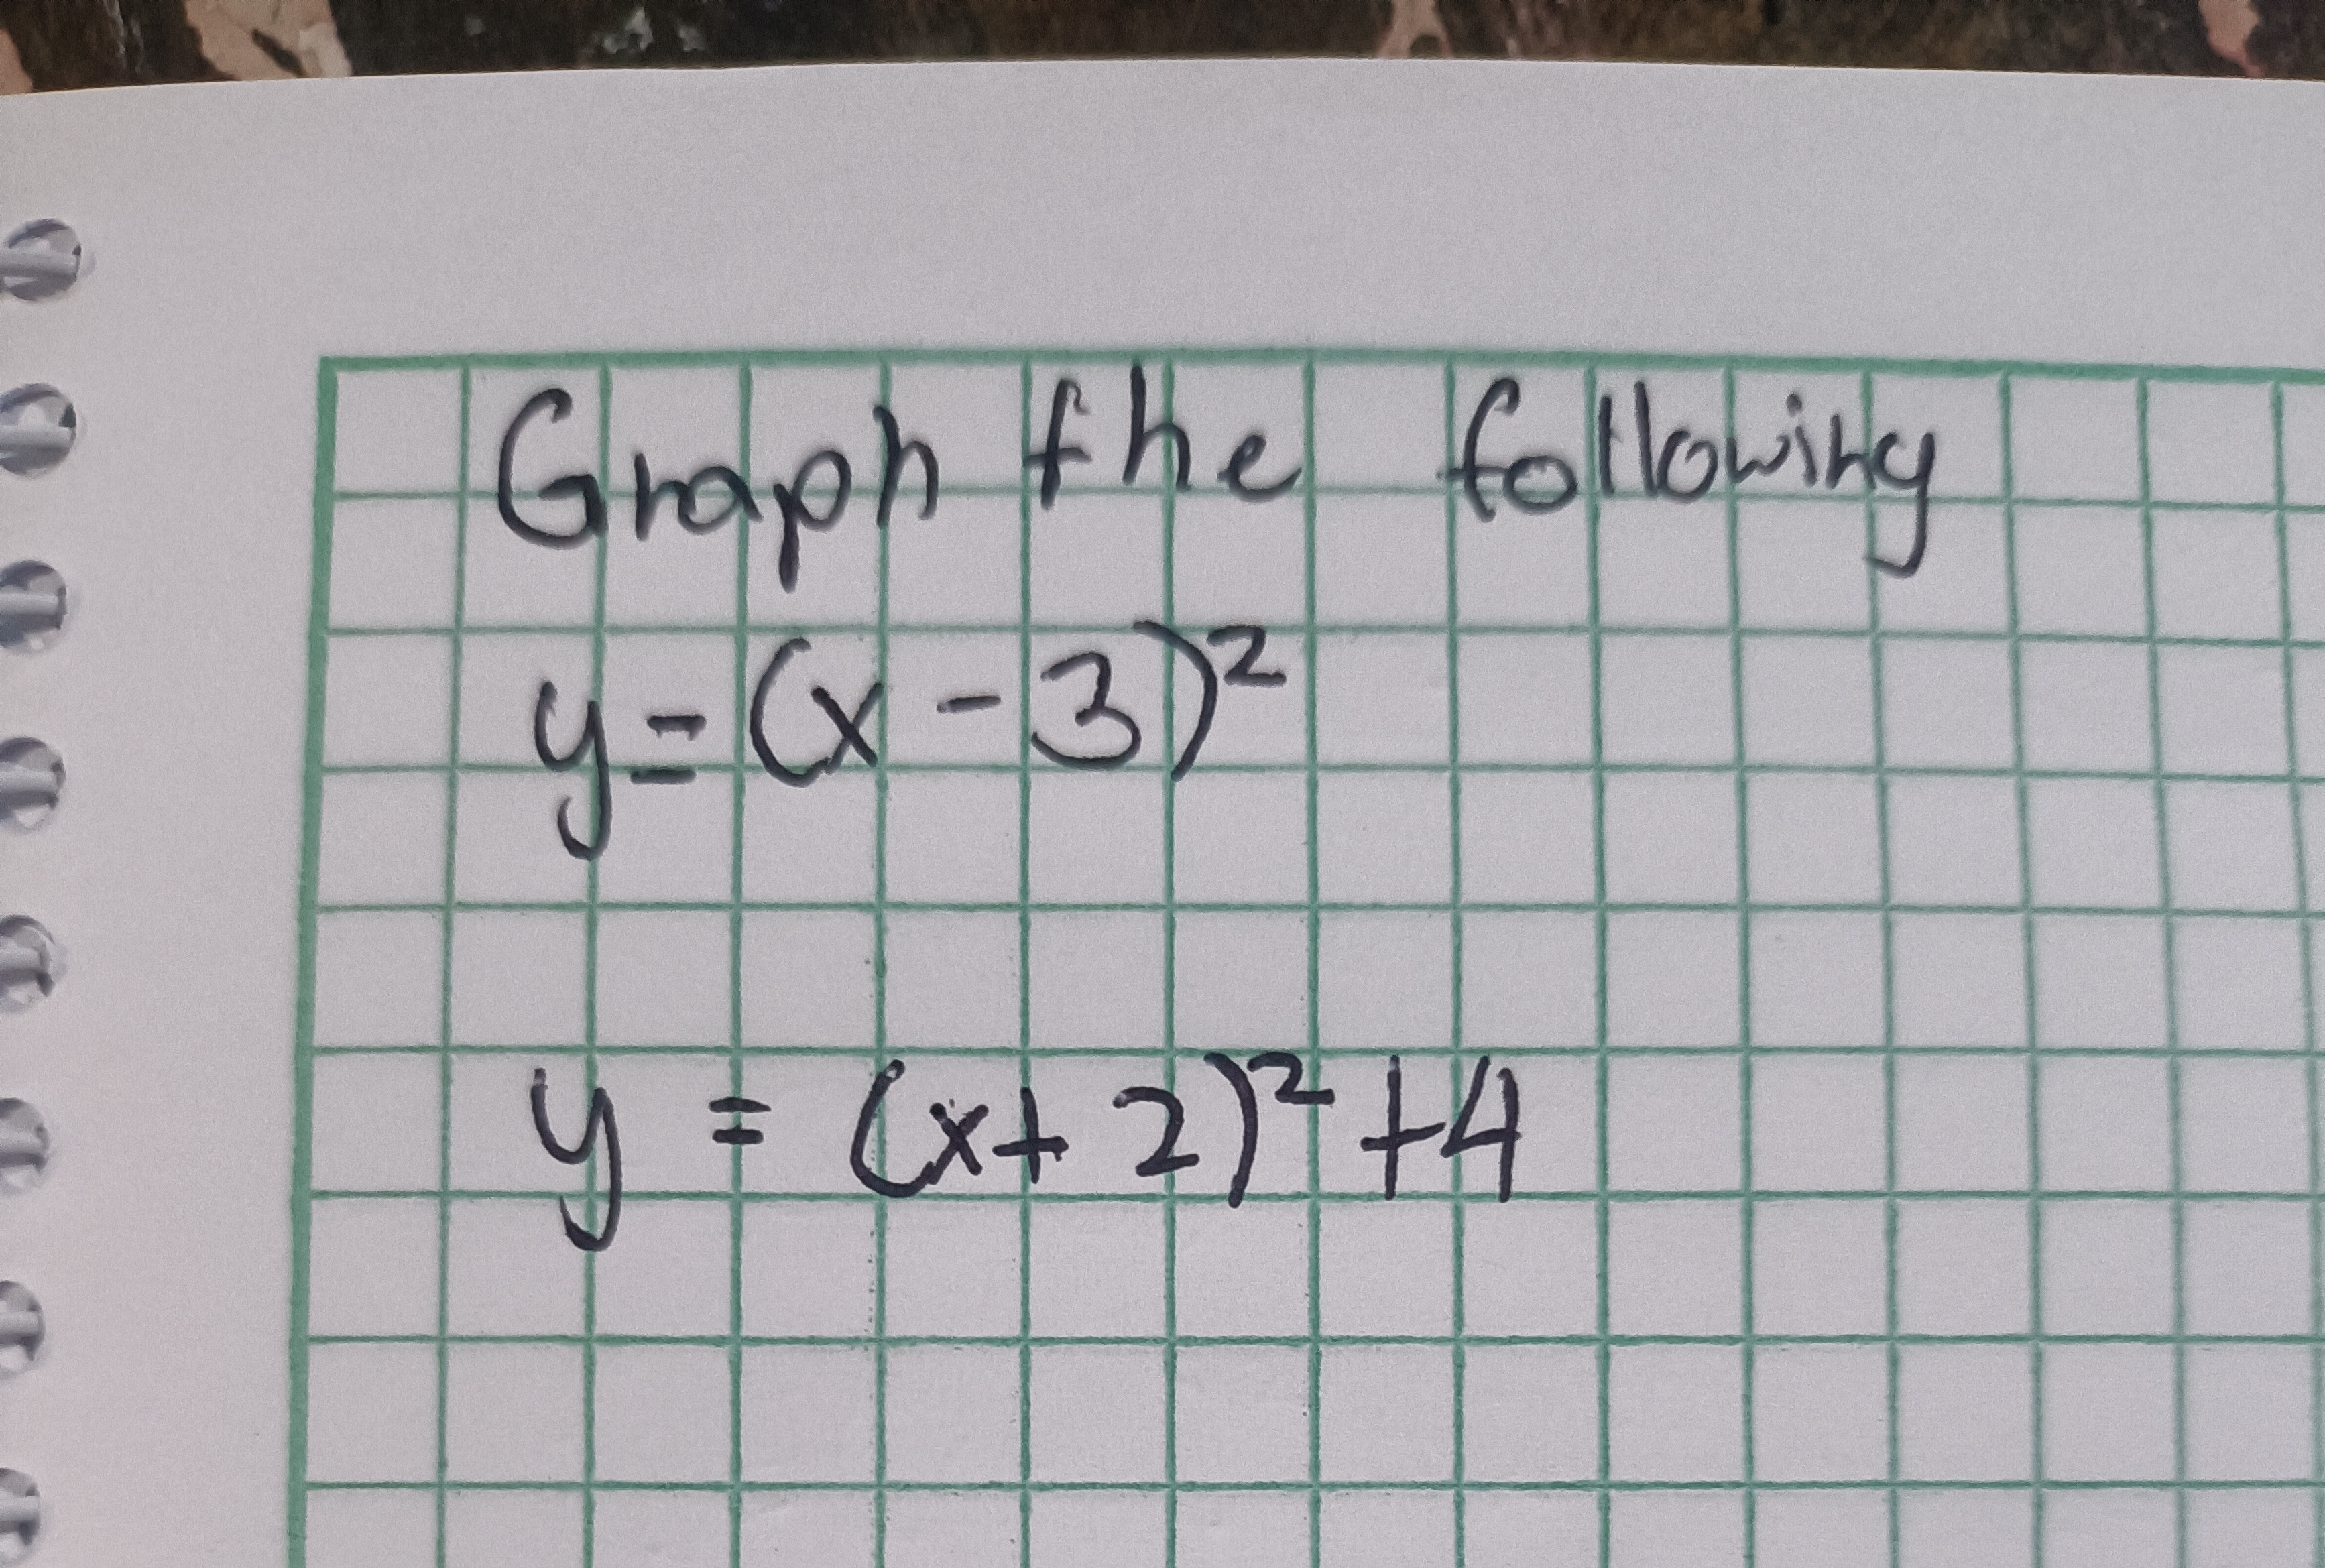 Graph the following
y = (x - 3)²
y = (x + 2)² + 4